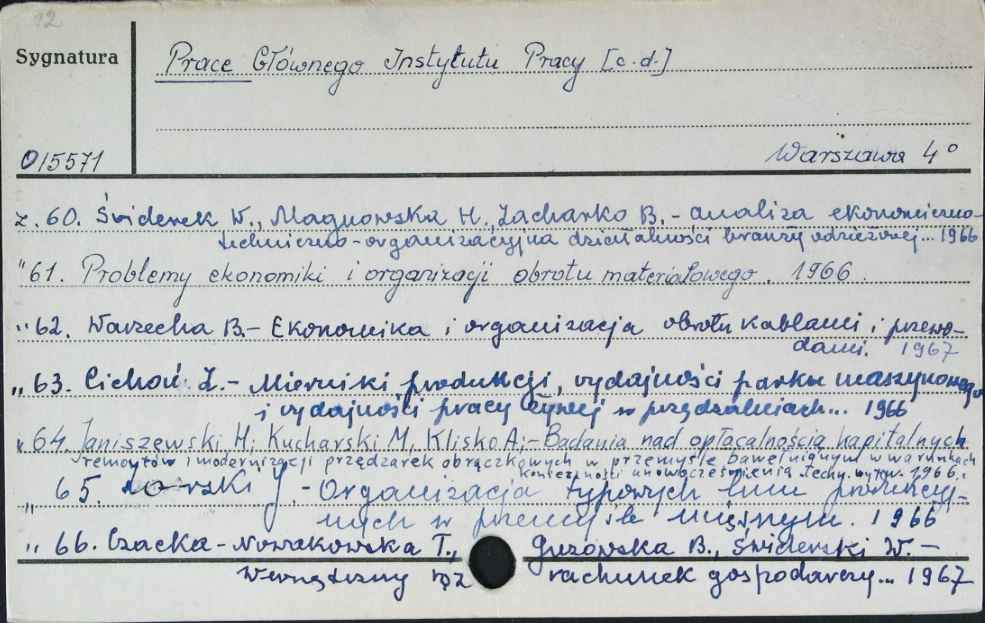 92
Sygnatura
Prace Głównego Instytutu Pracy [c.d.]
0/5571
Warszawa 4°
z. 60. Świderek W., Magnowska H., Zacharko B. - Analiza ekonomiczno-
techniczno-organizacyjna działalności branży odzieżowej... 1966
" 61. Problemy ekonomiki i organizacji obrotu materiałowego. 1966.
" 62. Warzecha B. - Ekonomika i organizacja obrotu kablami i przewo-
dami. 1967
" 63. Cichoń Z. - Mierniki produkcji, wydajności parku maszynowego
i wydajności pracy żywej w przędzalniach... 1966
" 64. Janiszewski H; Kucharski M, Klisko A; - Badania nad opłacalnością kapitalnych
remontów i modernizacji przędzarek obrączkowych w przemyśle bawełnianym w warunkach
konieczności unowocześnienia techn. wytw. 1966.
" 65. J. - Organizacja typowych linii produkcyj-
nych w przemyśle mięsnym. 1966
" 66. Czacka-Nowakowska T., Guzowska B., Świderski W. -
Wewnętrzny rachunek gospodarczy... 1967